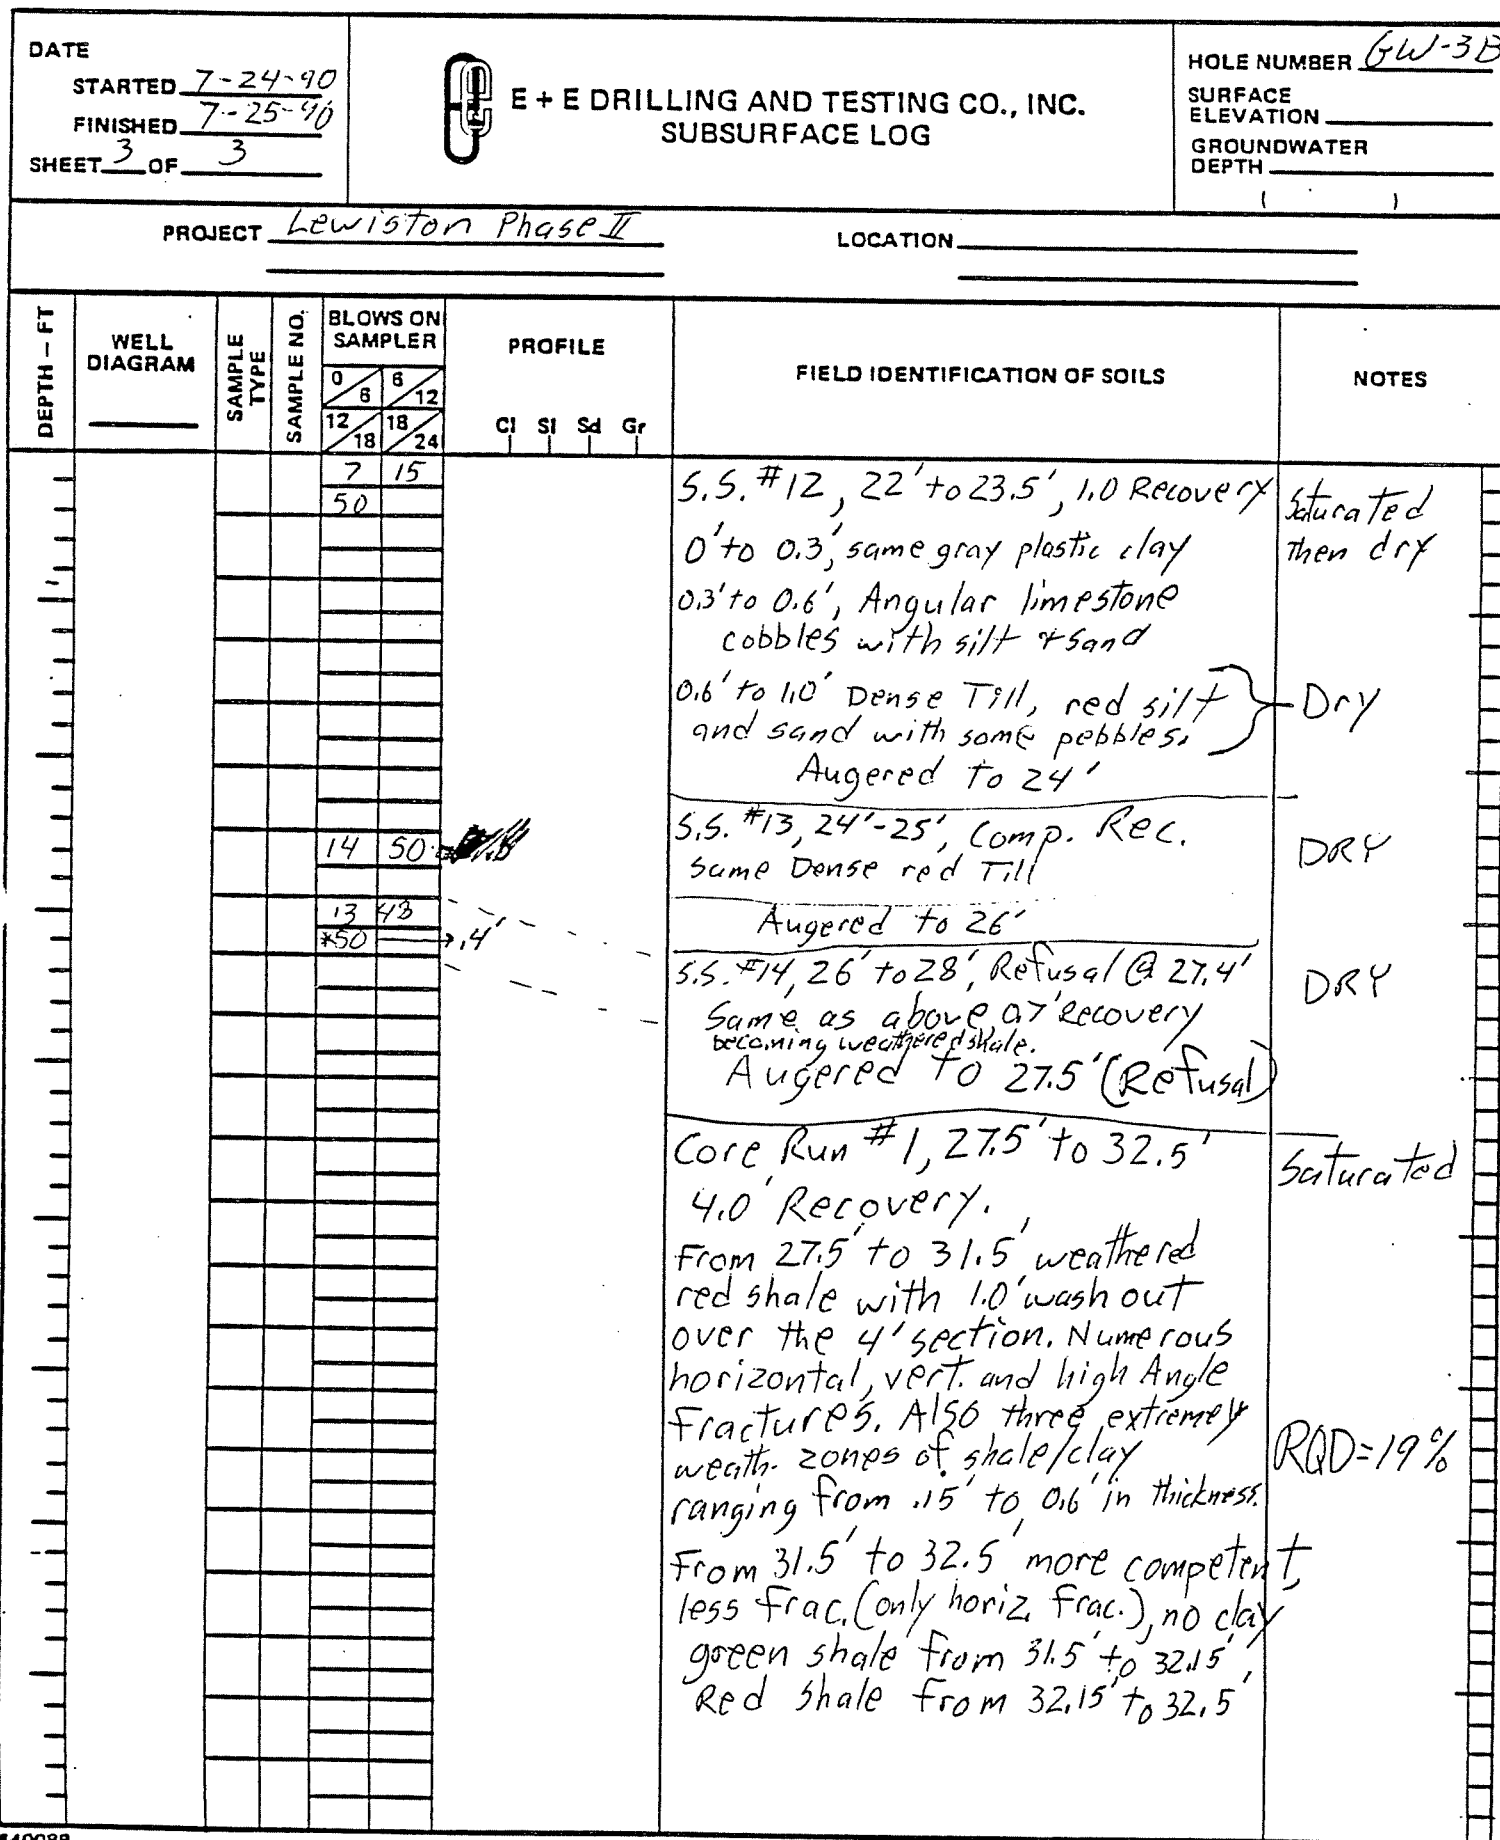 DATE
STARTED 7-24-90
FINISHED 7-25-90
SHEET 3 OF 3
E + E DRILLING AND TESTING CO., INC.
SUBSURFACE LOG
HOLE NUMBER GW-3B
SURFACE
ELEVATION
GROUNDWATER
DEPTH
( )
PROJECT Lewiston Phase II
LOCATION
DEPTH – FT
WELL
DIAGRAM
SAMPLE
TYPE
SAMPLE NO.
BLOWS ON
SAMPLER
0/6 6/12
12/18 18/24
PROFILE
Cl Sl Sd Gr
FIELD IDENTIFICATION OF SOILS
NOTES
7 15
50
S.S. #12, 22' to 23.5', 1.0 Recovery
Saturated
then dry
0' to 0.3', same gray plastic clay
0.3' to 0.6', Angular limestone
cobbles with silt + sand
0.6' to 1.0' Dense Till, red silt
and sand with some pebbles.
Dry
Augered to 24'
14 50
S.S. #13, 24'-25', Comp. Rec.
Same Dense red Till
DRY
13 43
*50 → .4'
Augered to 26'
S.S. #14, 26' to 28', Refusal @ 27.4'
Same as above 0.7' Recovery
becoming weathered shale.
DRY
Augered to 27.5' (Refusal)
Core Run #1, 27.5' to 32.5'
Saturated
4.0' Recovery.
From 27.5' to 31.5' weathered
red shale with 1.0' wash out
over the 4' section. Numerous
horizontal, vert. and high Angle
Fractures. Also three extremely
weath. zones of shale/clay
RQD=19%
ranging from .15' to 0.6' in thickness.
From 31.5' to 32.5' more competent,
less frac. (only horiz. frac.), no clay
green shale from 31.5' to 32.15',
Red shale from 32.15' to 32.5'